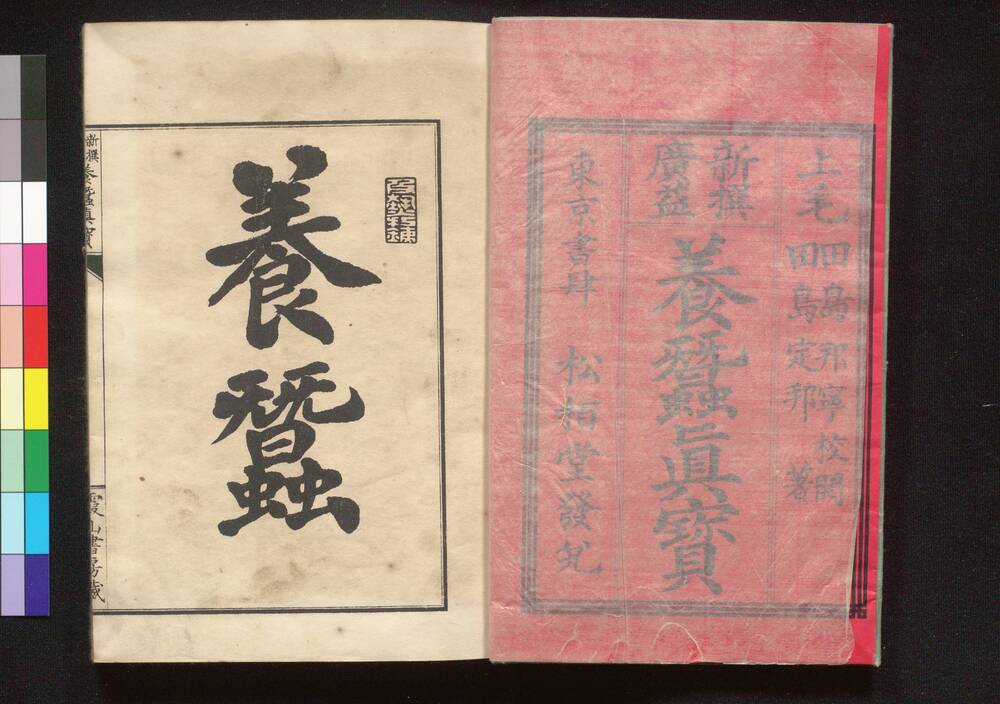 上毛
田島邦寧校閲
田島定邦著
新撰
廣益
養蠶眞寶
東京書肆 松栢堂發兌
養蠶
新撰養蠶眞寶